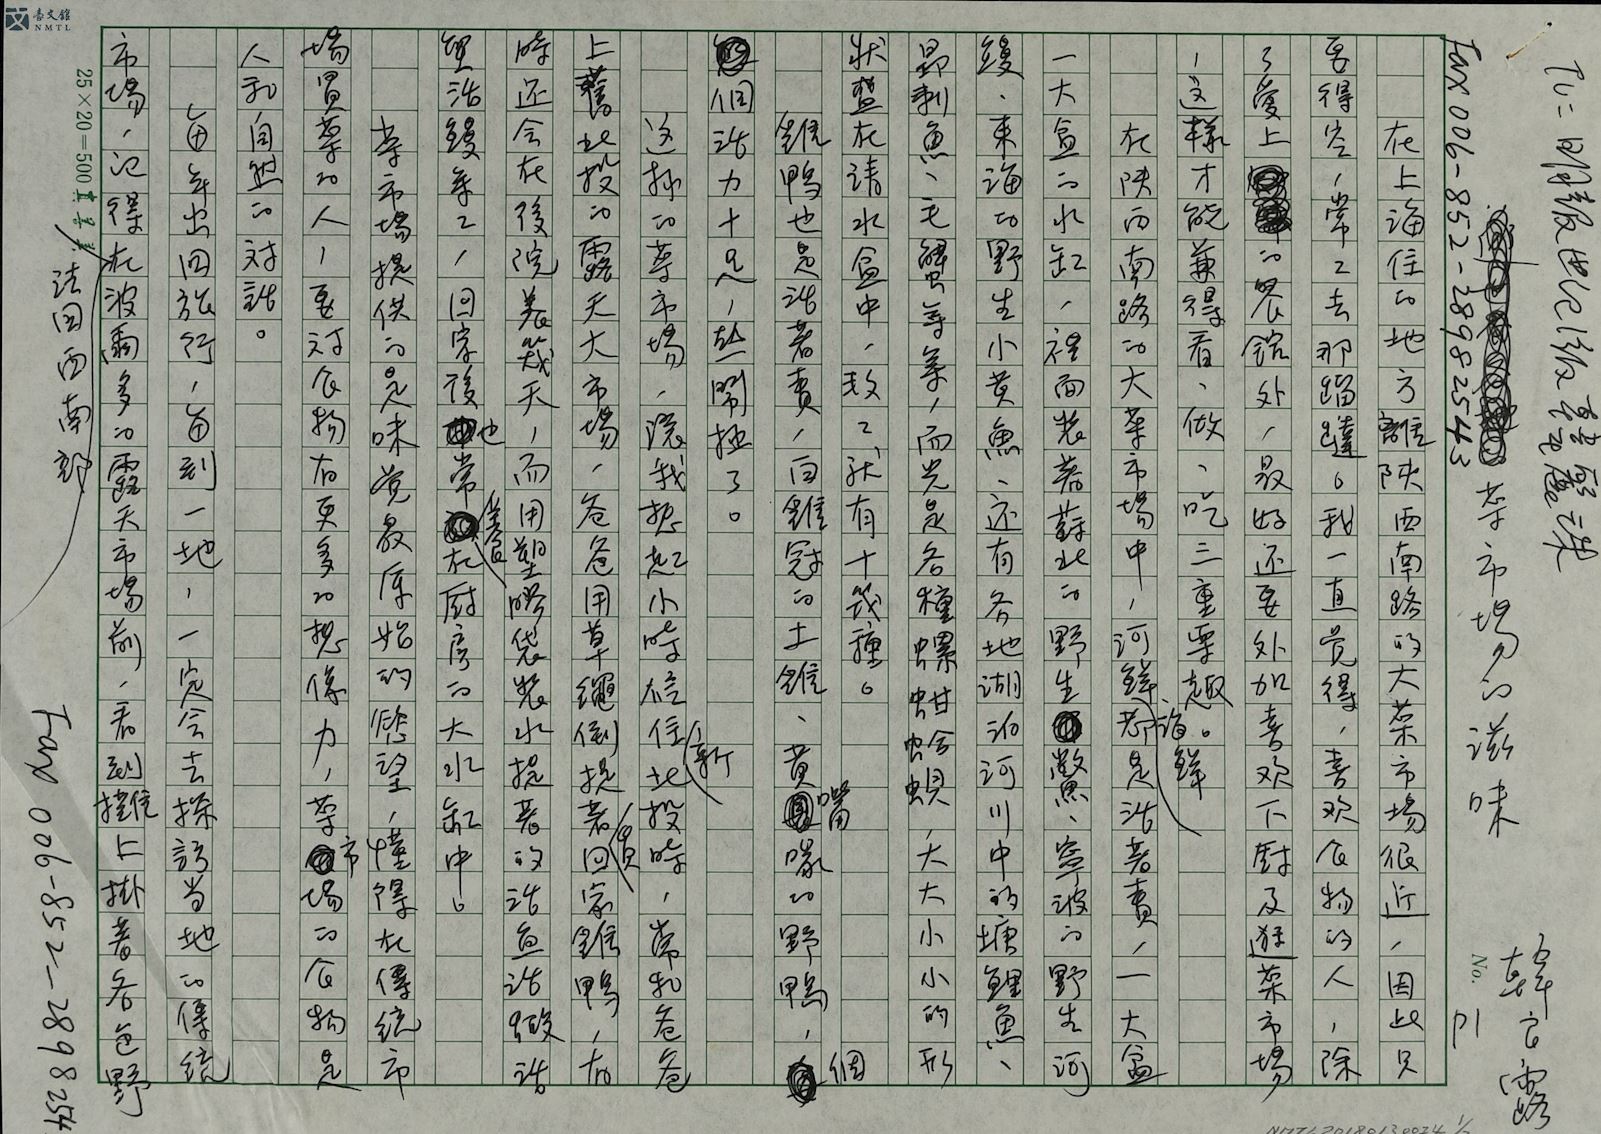 臺文館
NMTL
To: 明報世紀版
Fax 006-852-28982543
菜市場的滋味
韓良露
No. P1
在上海住的地方離陝西南路的大菜市場很近，因此只
要得空，常常去那蹓躂。我一直覺得，喜欢食物的人，除
了愛上的餐館外，最好还要外加喜欢下廚及逛菜市場
，這樣才能兼得看、做、吃三重樂趣。
在陝西南路的大菜市場中，河鮮海鮮都是活著賣，一大盆
一大盒的水缸，裡面裝著蘇北的野生鱉、寧波的野生河
鰻、東海的野生小黃魚、还有各地湖泊河川中的塘鯉魚、
昂刺魚、毛蟹等等，而光是各種螺蚶蛤蜆，大大小小的形
狀盤在清水盆中，数数就有十幾種。
雞鴨也是活著賣，白雞冠的土雞、黃嘴喙的野鴨，個
個活力十足，热鬧極了。
這樣的菜市場，讓我想起小時候住新北投時，常和爸爸
上舊北投的露天大市場，爸爸用草繩倒提著買回家雞鴨，有
時还会在後院養幾天，而用塑膠袋裝水提著的活魚活蝦活
蟹活鰻等等，回家後也常養在廚房的大水缸中。
菜市場提供的是味覺最原始的慾望，懂得在傳統市
場買菜的人，要对食物有更多的想像力，菜市場的食物是
人和自然的对話。
每年出国旅行，每到一地，一定会去探訪当地的傳統
市場，记得在波爾多的露天市場前，看到攤位上掛著各色野
法国西南部
25×20=500
Fax 006-852-2898254
NMTL20180130024 1/